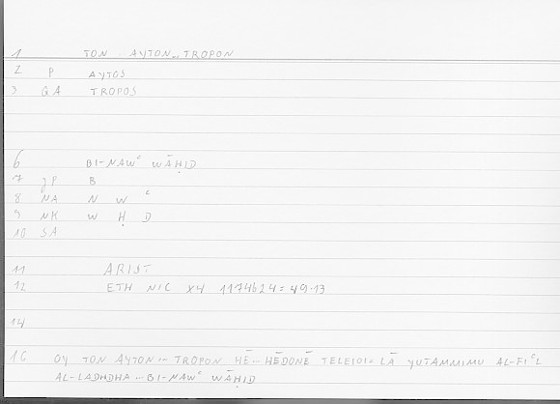 1 TON .. AYTON .. TROPON
2 P AYTOS
3 QA TROPOS
6 BI-NAWʿ WĀḤID
7 gP B
8 NA N W ʿ
9 NK W Ḥ D
10 SA
11 ARIST
12 ETH NIC X4 1174b24 = 49.13
14
16 OY TON AYTON .. TROPON HĒ .. HĒDONĒ TELEIOI = LĀ YUTAMMIMU AL-FIʿL
AL-LADHDHA .. BI-NAWʿ WĀḤID